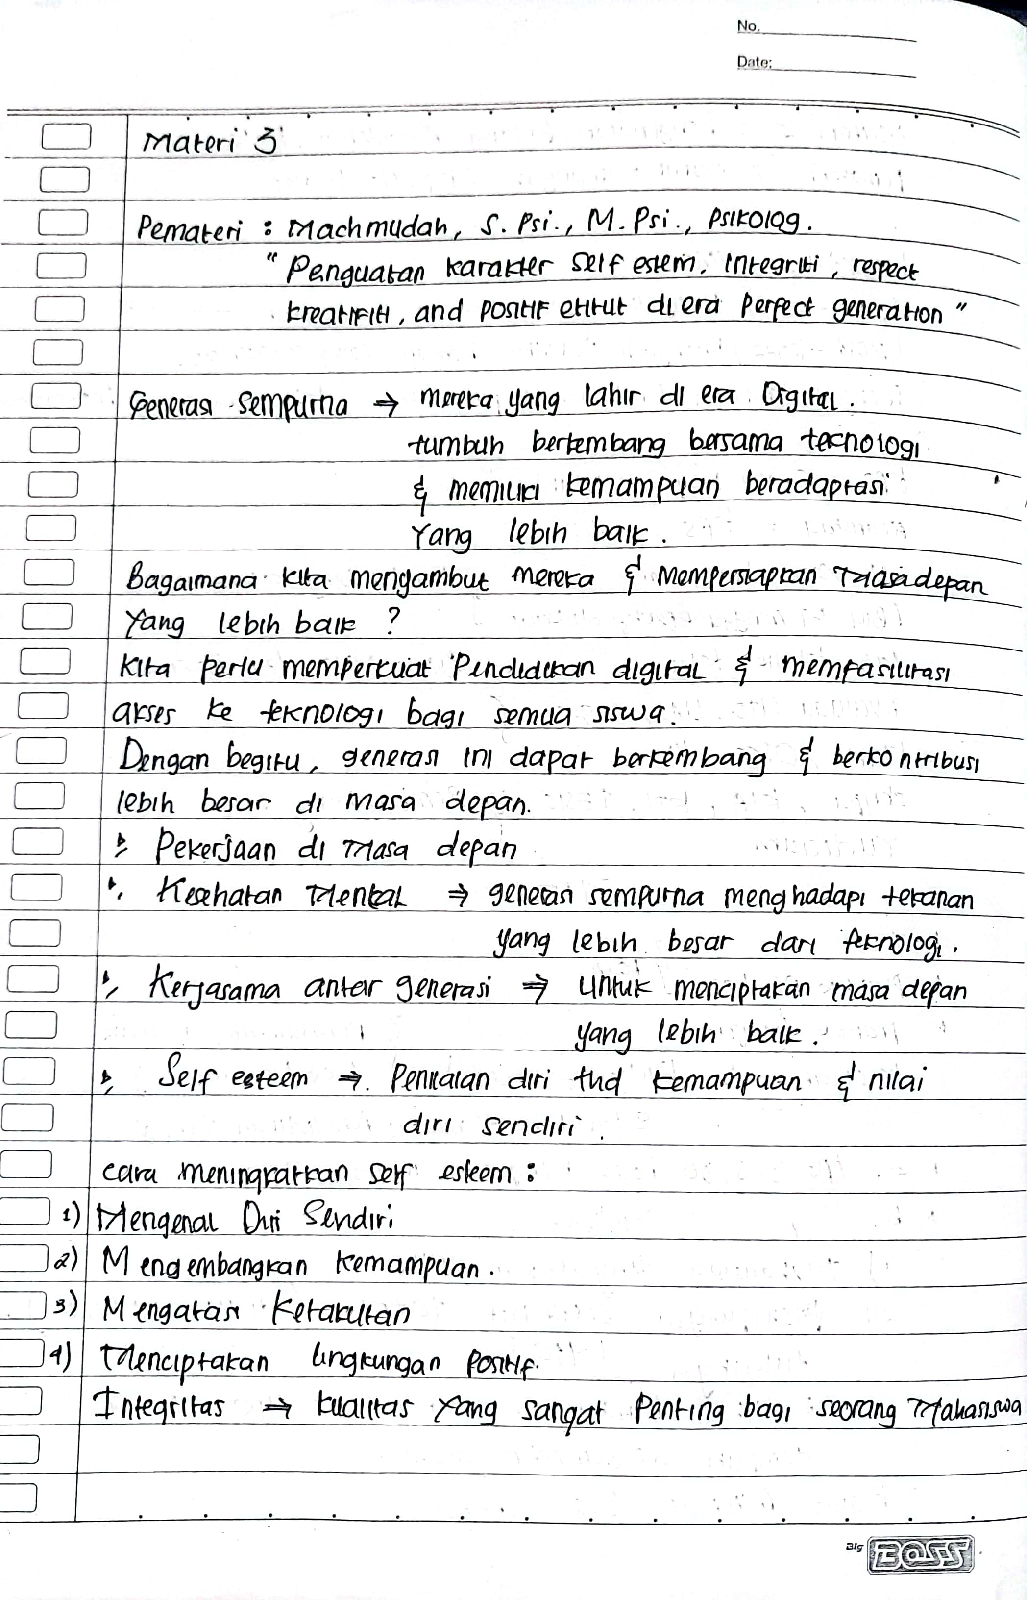 No.
Date:
Materi 3
Pemateri : Machmudah, S. Psi., M. Psi., Psikolog.
" Penguatan karakter self estem, integriti, respect
kreatifiti, and positif etitut di era perfect generation "
Generasi sempurna → mereka yang lahir di era Digital.
tumbuh berkembang bersama tecnologi
& memiliki kemampuan beradaptasi
yang lebih baik.
Bagaimana kita mengambut mereka & mempersiapkan masa depan
yang lebih baik ?
kita perlu memperkuat Pendidikan digital & memfasilitasi
akses ke teknologi bagi semua siswa.
Dengan begitu, generasi ini dapat berkembang & berkontribusi
lebih besar di masa depan.
Pekerjaan di masa depan
Kesehatan Mental ⇒ generasi sempurna menghadapi tekanan
yang lebih besar dari teknologi.
Kerjasama antar generasi ⇒ untuk menciptakan masa depan
yang lebih baik.
Self esteem ⇒ Penilaian diri thd kemampuan & nilai
diri sendiri.
cara meningkatkan self esteem :
1) Mengenal Diri Sendiri
2) Mengembangkan kemampuan.
3) Mengatasi Ketakutan
4) Menciptakan lingkungan positif.
Integritas ⇒ kualitas yang sangat Penting bagi seorang Mahasiswa
Big BOSS